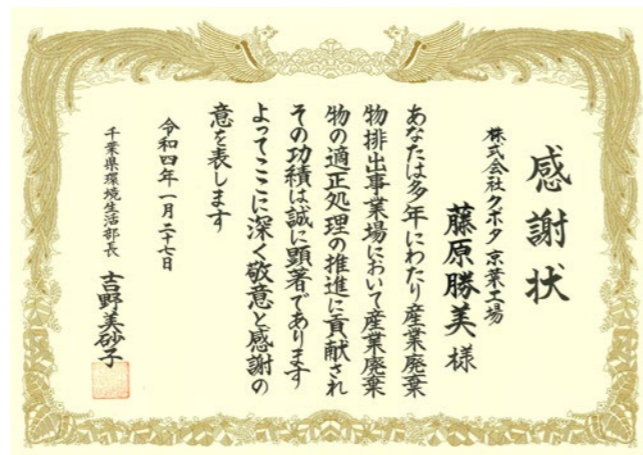 感謝状
株式会社クボタ京葉工場
藤原勝美様
あなたは多年にわたり産業廃棄
物排出事業場において産業廃棄
物の適正処理の推進に貢献され
その功績は誠に顕著であります
よってここに深く敬意と感謝の
意を表します
令和四年一月二十七日
千葉県環境生活部長
吉野美砂子